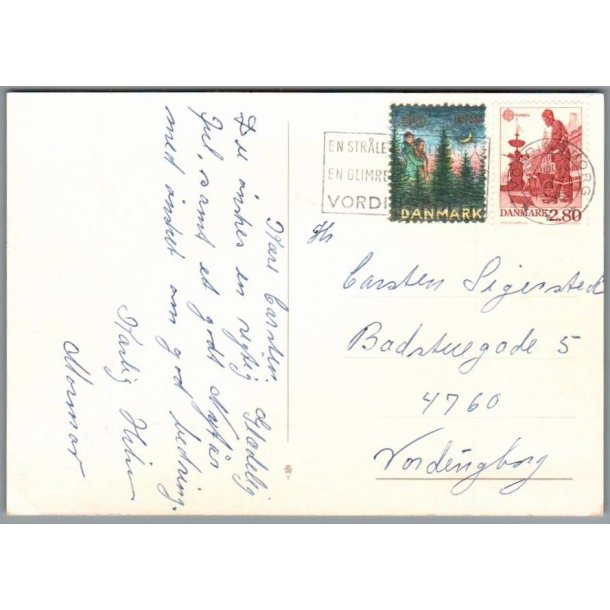 Kære Carsten
Du ønskes en rigtig Glædelig
Jul, samt et godt Nytår
med ønsket om god bedring.
Kærlig Hilsen
Mormor
EN STRÅLE
EN GLIMRE
VORDI
DANMARK
EUROPA
DANMARK 2.80
BORG
Hr
Carsten Sigersted
Badstuegade 5
4760
Vordingborg